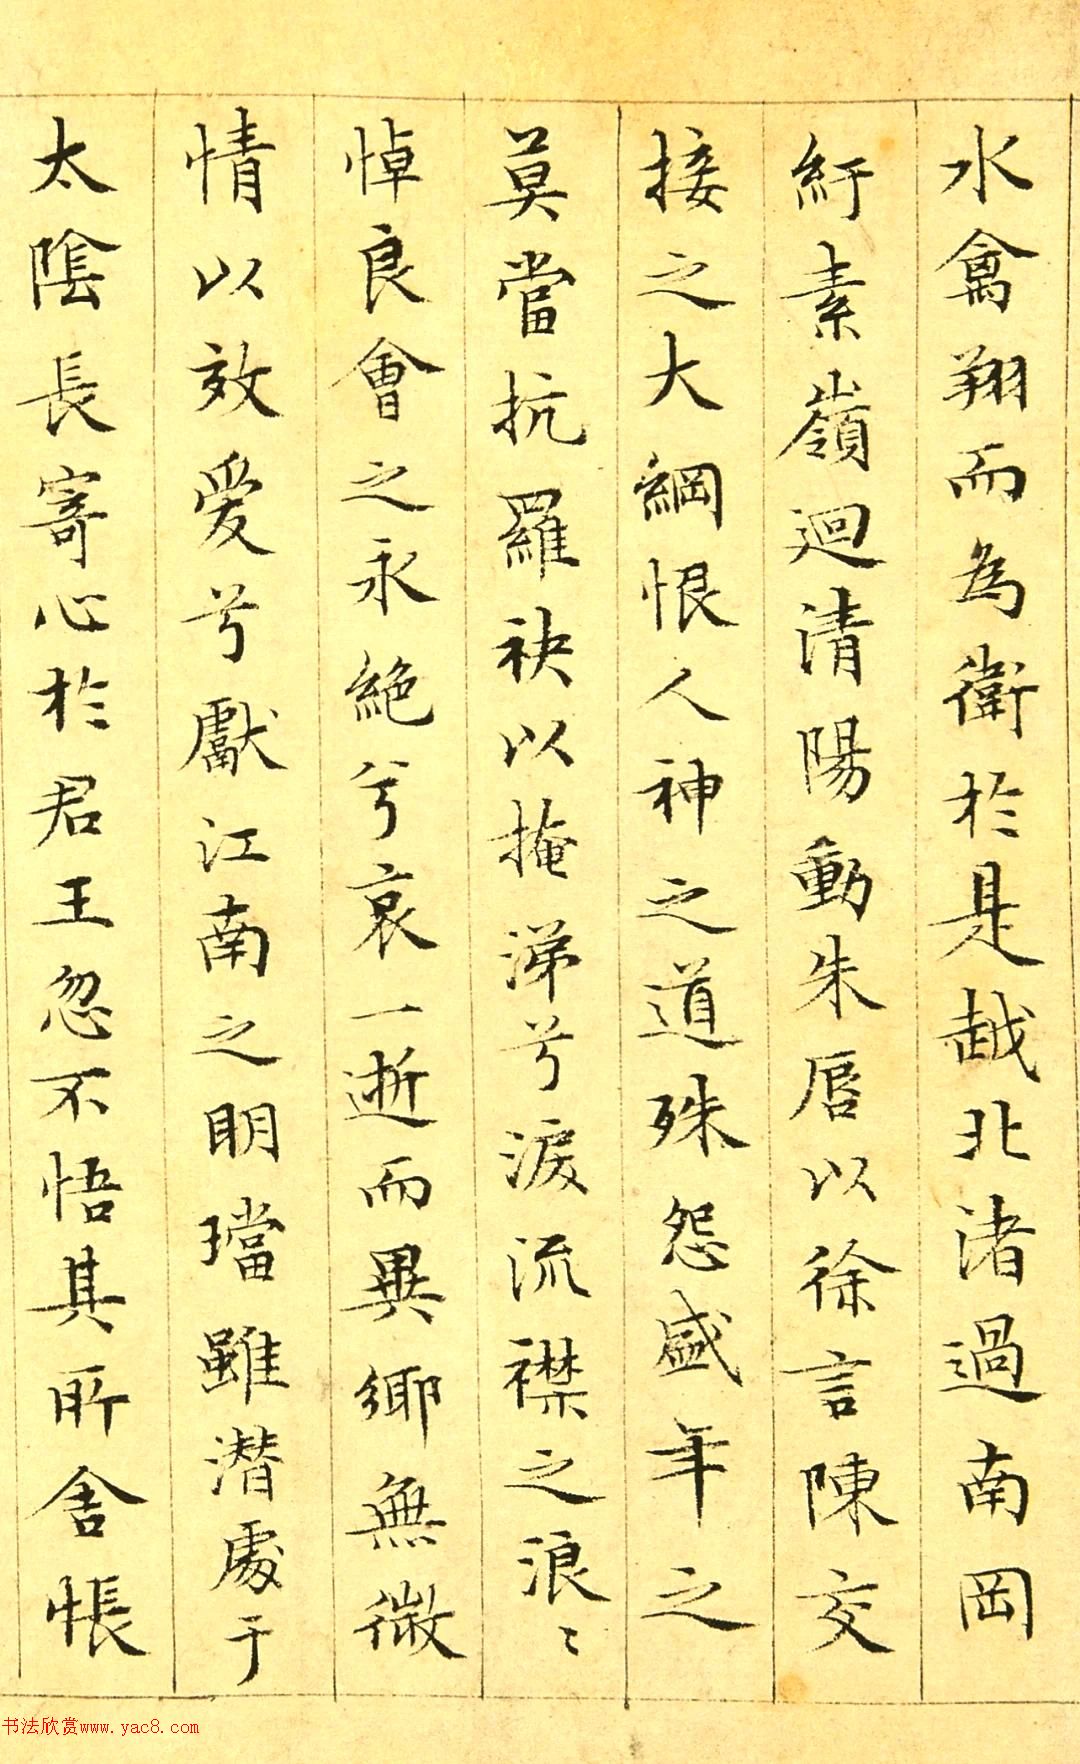 水禽翔而為衛於是越北渚過南岡
紆素嶺迴清陽動朱脣以徐言陳交
接之大綱恨人神之道殊怨盛年之
莫當抗羅袂以掩涕兮淚流襟之浪〻
悼良會之永絕兮哀一逝而異鄉無微
情以效爱兮獻江南之明璫雖潜處于
太陰長寄心於君王忽不悟其所舍悵
书法欣赏www.yac8.com